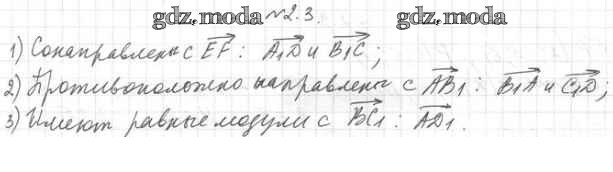 gdz.moda №2.3. gdz.moda
1) Сонаправлены с EF: A₁D и B₁C;
2) Противоположно направлены с AB₁: B₁A и C₁D;
3) Имеют равные модули с BC₁: AD₁.